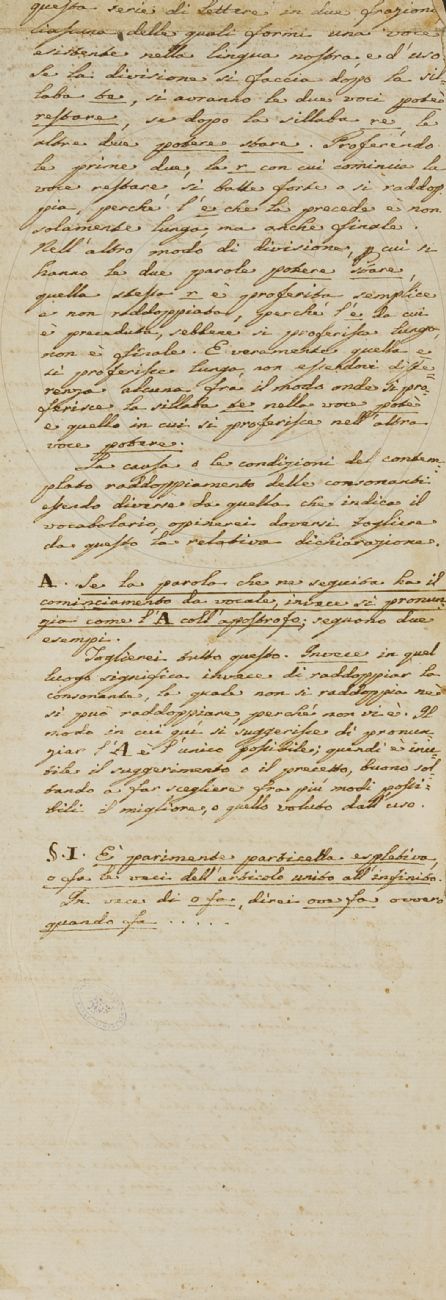 questa serie di lettere in due frazioni,
ciascuna delle quali formi una voce
esistente nella lingua nostra, e d'uso.
Se la divisione si faccia dopo la sil
laba te, si avranno le due voci potè
restare, se dopo la sillaba re le
altre due potere stare. Proferendo
le prime due, la r con cui comincia la
voce restare si batte forte o si raddop
pia, perchè l'e che la precede è non
solamente lunga, ma anche finale.
Nell'altro modo di divisione, p cui si
hanno le due parole potere stare,
quella stessa r è proferita semplice
e non raddoppiata, perchè l'e da cui
è preceduta, sebbene si proferisca lunga,
non è finale. E veramente quella e
si proferisce lunga, non essendovi diffe=
renza alcuna fra il modo onde si pro=
ferisce la sillaba te nella voce potè
e quello in cui si proferisce nell'altra
voce potere.
La causa o le condizioni del contem=
plato raddoppiamento delle consonanti
essendo diverse da quella che indica il
vocabolario, opinerei doversi togliere
da questo la relativa dichiarazione.
A. Se la parola che ne seguita ha il
cominciamento da vocale, invece si pronun
zia come l'A coll'apostrofo; seguono due
esempi.
Toglierei tutto questo. Invece in quel
luogo significa invece di raddoppiar la
consonante, la quale non si raddoppia nè
si può raddoppiare, perchè non vi è. Il
modo in cui qui si suggerisce di pronun
ziar l'A è l'unico possibile; quindi è inu=
tile il suggerimento o il precetto, buono sol=
tanto a far scegliere fra più modi possi=
bili il migliore, o quello voluto dall'uso.
§.I. È parimente particella espletiva,
o fa le veci dell'articolo unito all'infinito.
In vece di o fa, direi ove fa ovvero
quando fa .....